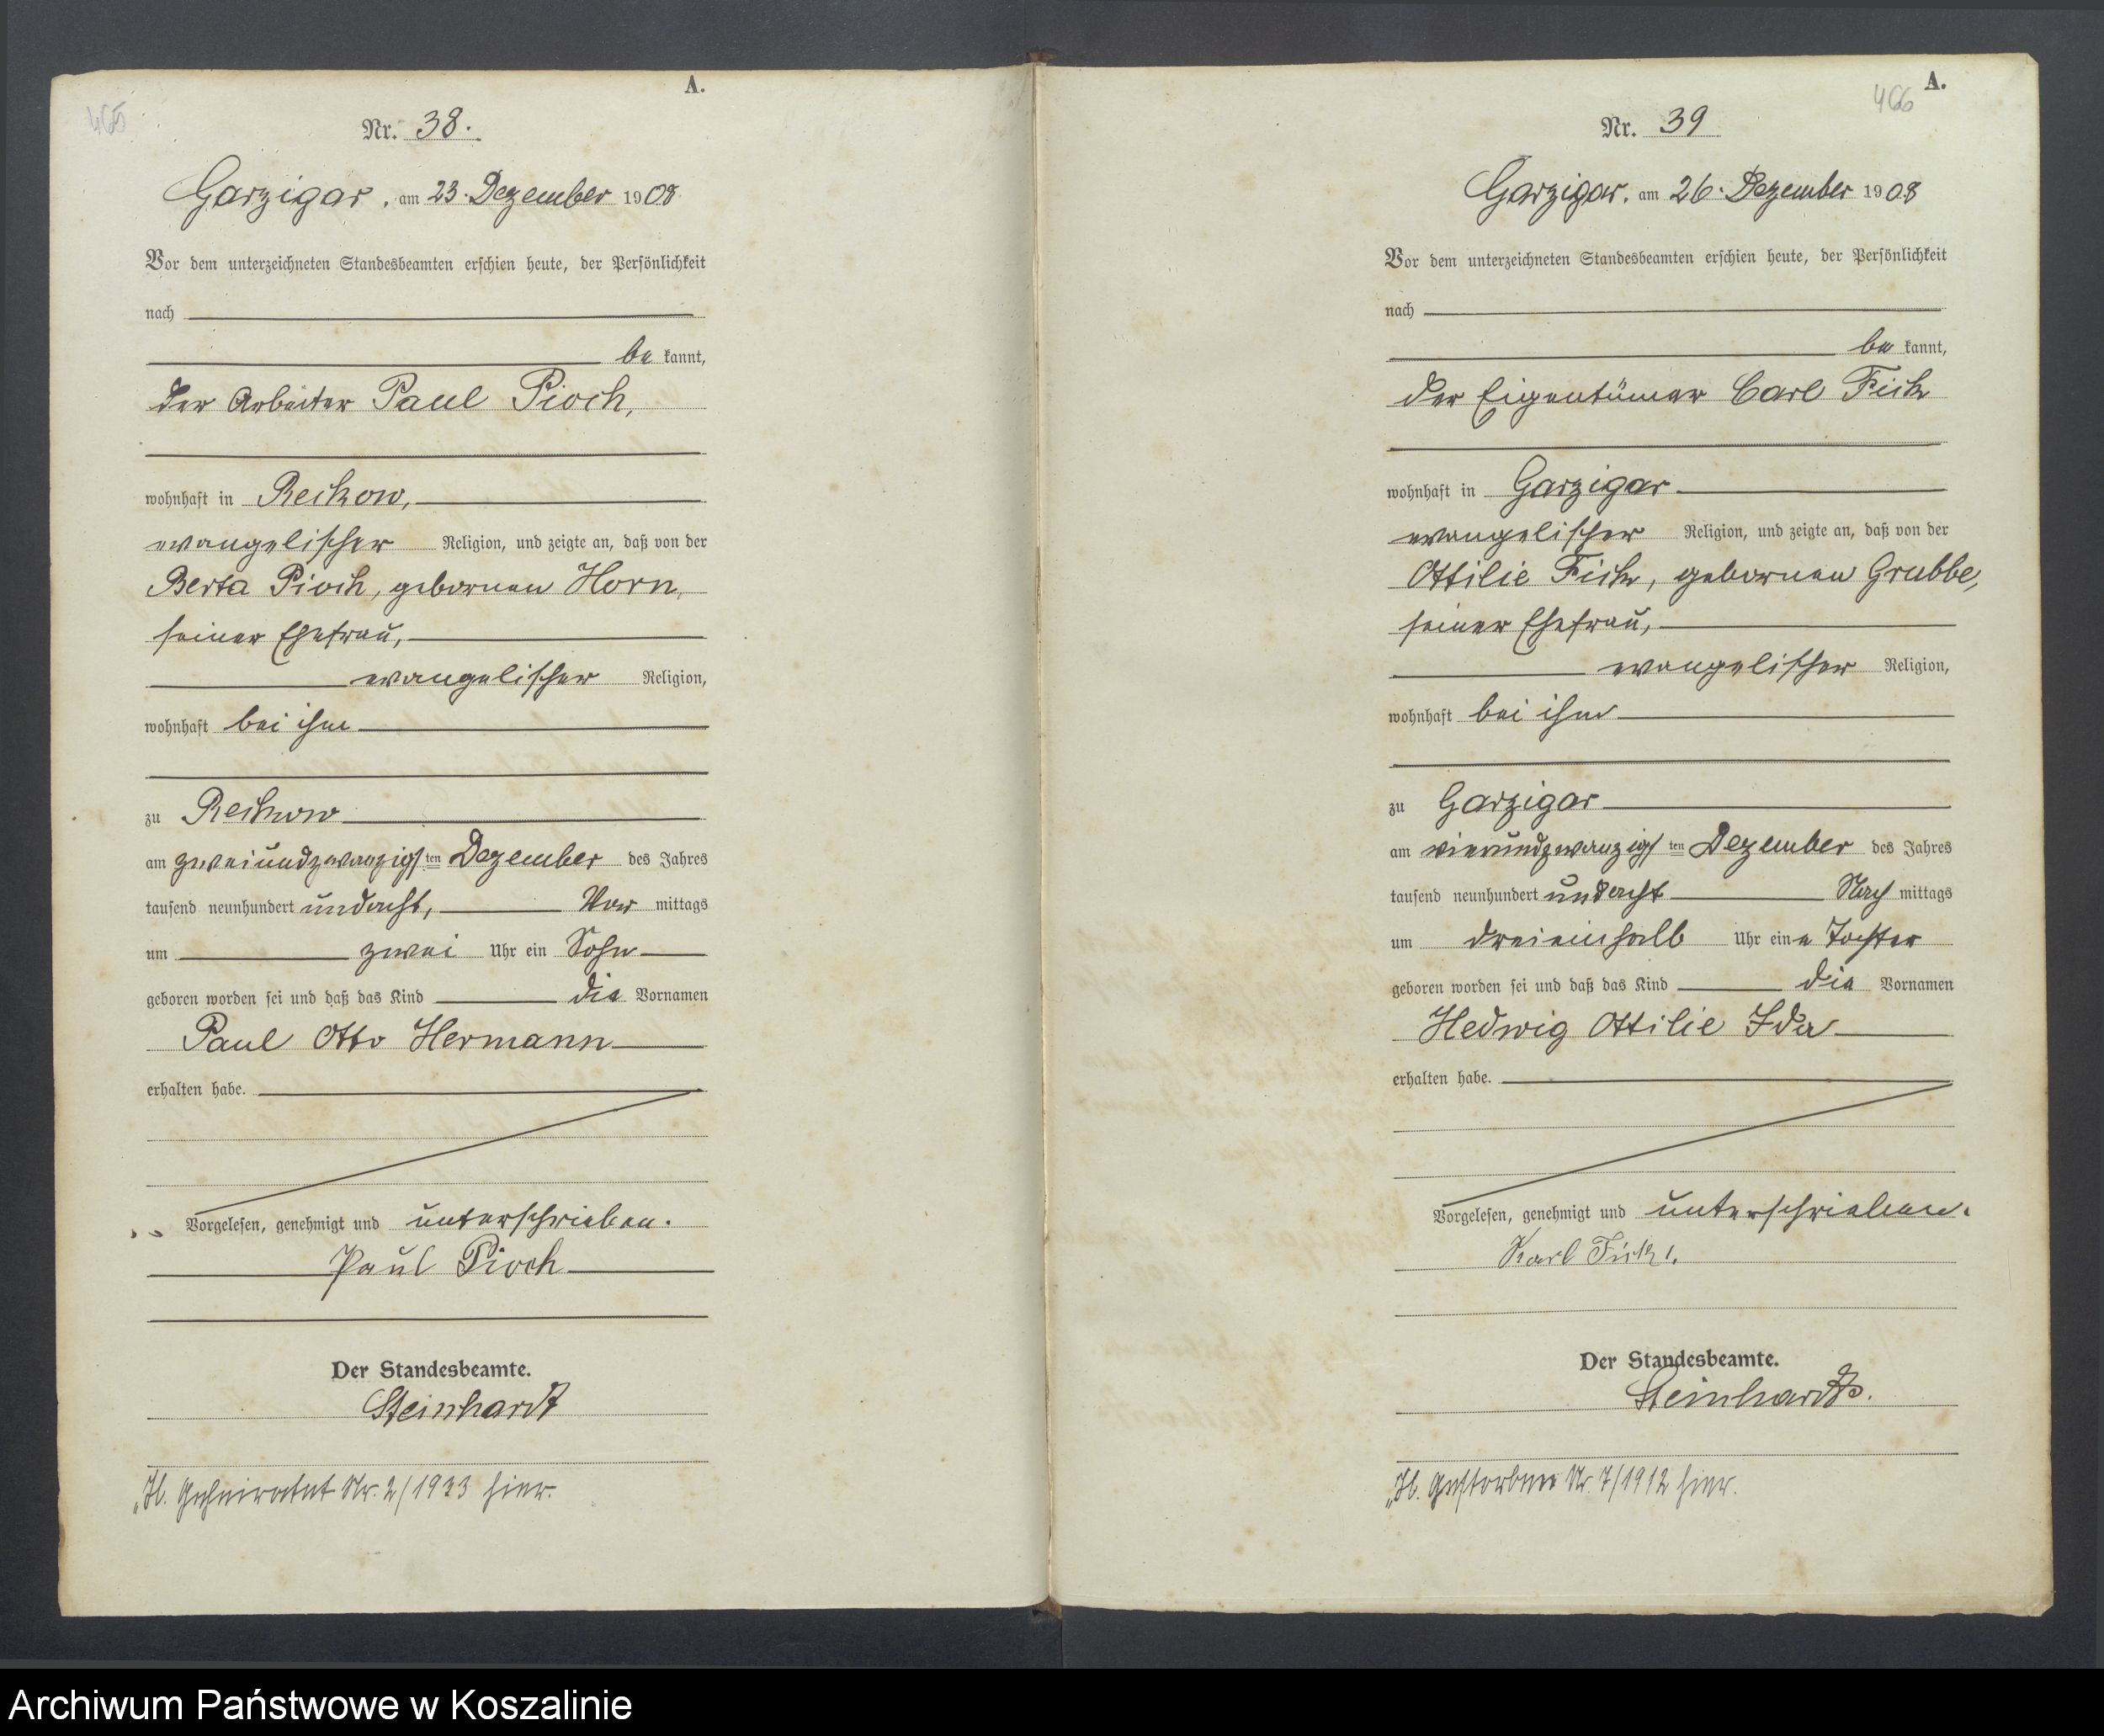 465
A.
Nr. 38.
Garzigar, am 23. Dezember 1908
Vor dem unterzeichneten Standesbeamten erschien heute, der Persönlichkeit
nach
be kannt,
der Arbeiter Paul Pioch,
wohnhaft in Reckow,
evangelischer Religion, und zeigte an, daß von der
Berta Pioch, gebornen Horn,
seiner Ehefrau,
evangelischer Religion,
wohnhaft bei ihm
zu Reckow
am zweiundzwanzigsten Dezember des Jahres
tausend neunhundert undacht, Vor mittags
um zwei Uhr ein Sohn
geboren worden sei und daß das Kind die Vornamen
Paul Otto Hermann
erhalten habe.
Vorgelesen, genehmigt und unterschrieben.
Paul Pioch
Der Standesbeamte.
Steinhardt
Geheiratet Nr. 2/1933 hier.
466
A.
Nr. 39
Garzigar, am 26. Dezember 1908
Vor dem unterzeichneten Standesbeamten erschien heute, der Persönlichkeit
nach
be kannt,
der Eigentümer Carl Fick
wohnhaft in Garzigar
evangelischer Religion, und zeigte an, daß von der
Ottilie Fick, gebornen Grubbe,
seiner Ehefrau,
evangelischer Religion,
wohnhaft bei ihm
zu Garzigar
am vierundzwanzigsten Dezember des Jahres
tausend neunhundert undacht Nach mittags
um dreieinhalb Uhr eine Tochter
geboren worden sei und daß das Kind die Vornamen
Hedwig Ottilie Ida
erhalten habe.
Vorgelesen, genehmigt und unterschrieben.
Karl Fick.
Der Standesbeamte.
Steinhardt.
Gestorben Nr. 7/1912 hier.
Archiwum Państwowe w Koszalinie